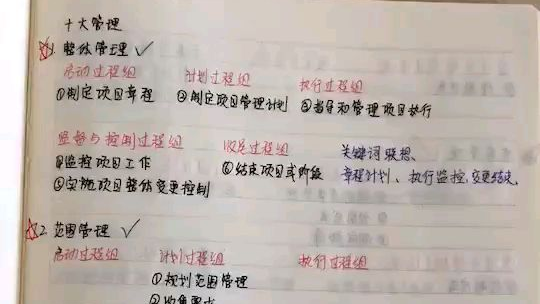 十大管理
☆1. 整体管理 ✓
启动过程组 计划过程组 执行过程组
①制定项目章程 ②制定项目管理计划 ③指导和管理项目执行
监督与控制过程组 收尾过程组 关键词联想.
④监控项目工作 ⑥结束项目或阶段 章程计划、执行监控,变更结束.
⑤实施项目整体变更控制
☆2. 范围管理 ✓
启动过程组 计划过程组 执行过程组
①规划范围管理
②收集需求